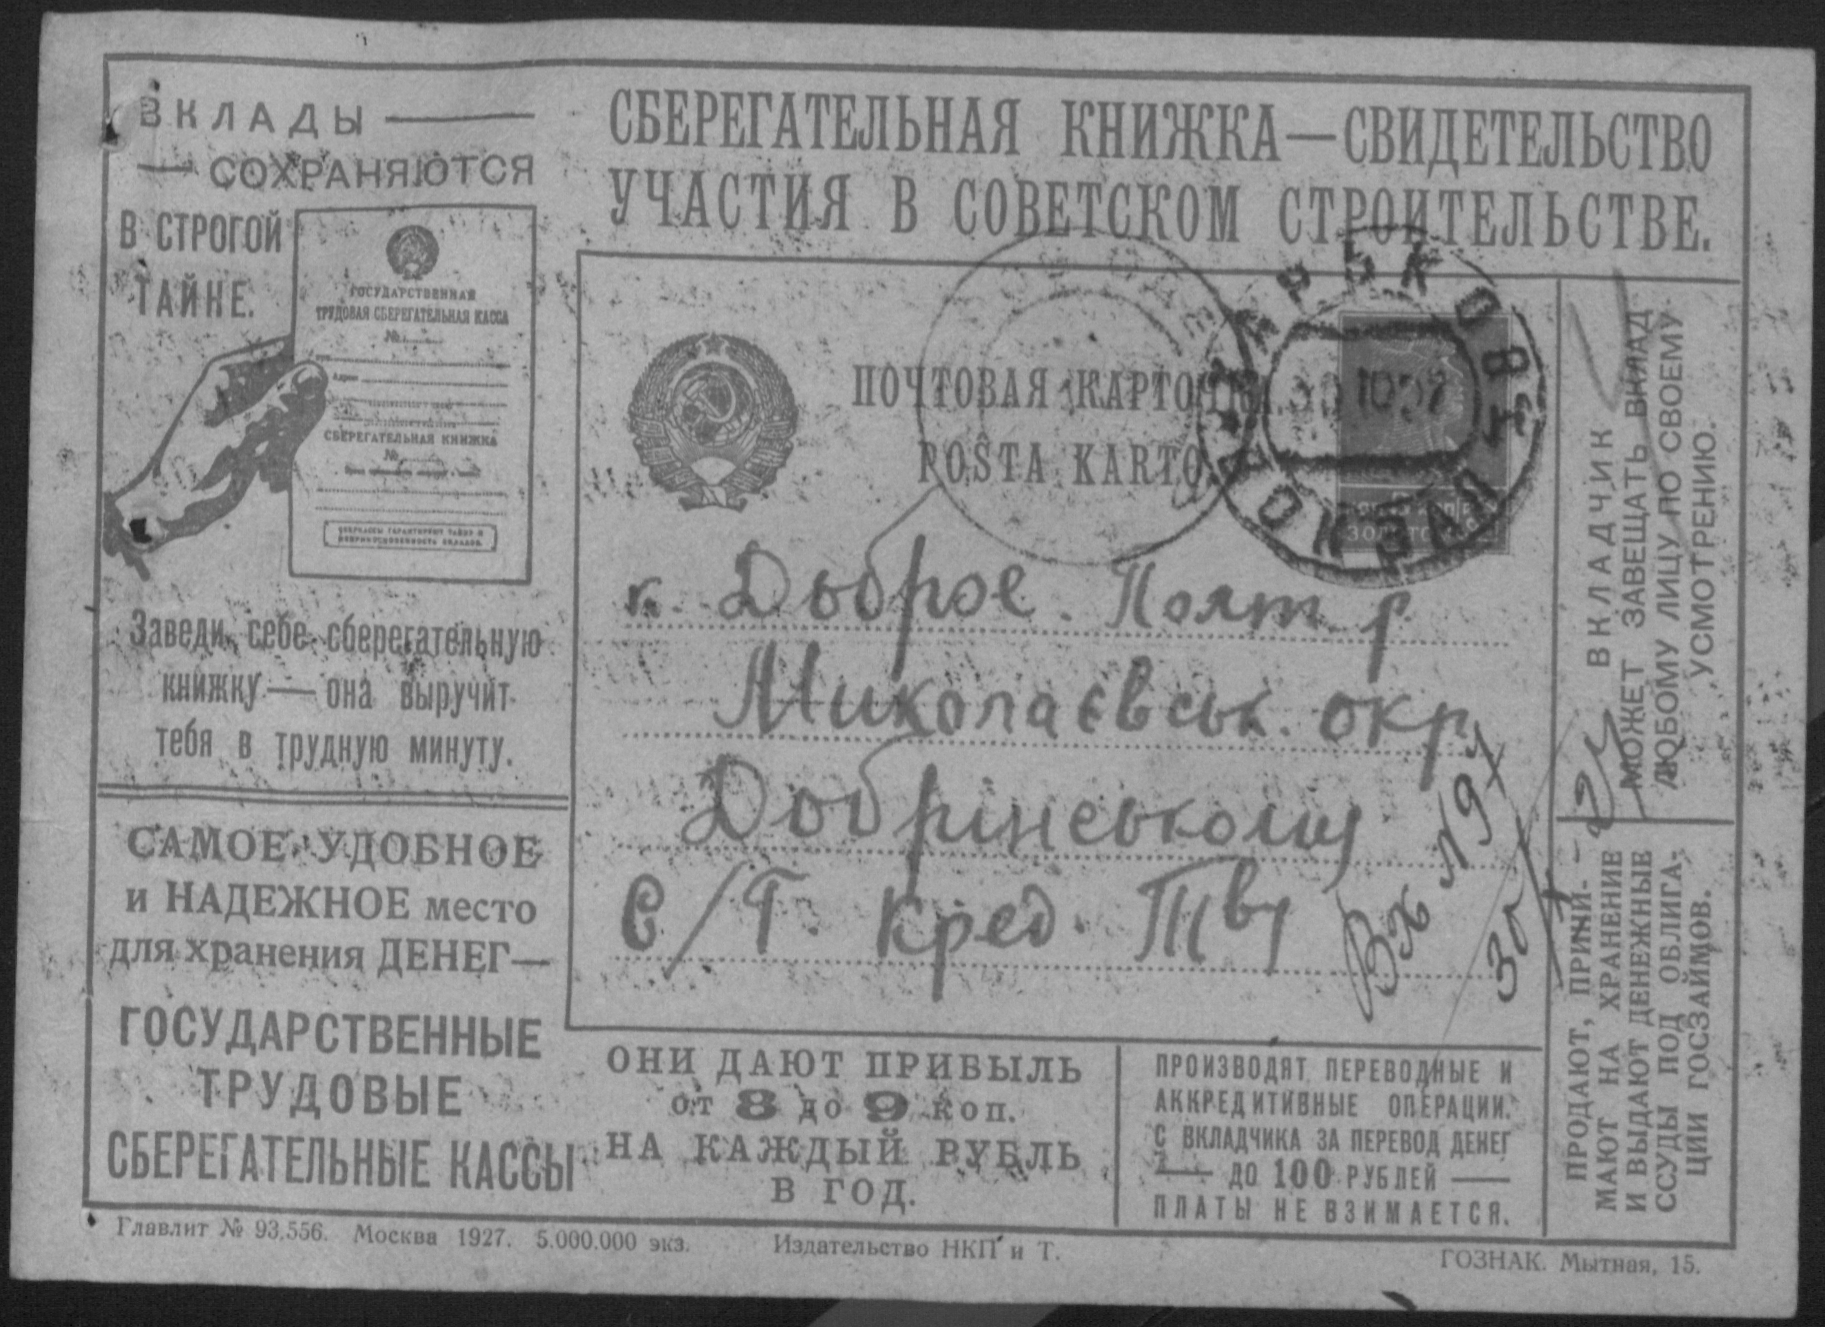 ВКЛАДЫ —
— СОХРАНЯЮТСЯ
В СТРОГОЙ
ТАЙНЕ.
ГОСУДАРСТВЕННАЯ
ТРУДОВАЯ СБЕРЕГАТЕЛЬНАЯ КАССА
№
Адрес
СБЕРЕГАТЕЛЬНАЯ КНИЖКА
№
СБЕРКАССЫ ГАРАНТИРУЮТ ТАЙНУ И
НЕПРИКОСНОВЕННОСТЬ ВКЛАДОВ.
Заведи себе сберегательную
книжку — она выручит
тебя в трудную минуту.
САМОЕ УДОБНОЕ
и НАДЕЖНОЕ место
для хранения ДЕНЕГ—
ГОСУДАРСТВЕННЫЕ
ТРУДОВЫЕ
СБЕРЕГАТЕЛЬНЫЕ КАССЫ
СБЕРЕГАТЕЛЬНАЯ КНИЖКА—СВИДЕТЕЛЬСТВО
УЧАСТИЯ В СОВЕТСКОМ СТРОИТЕЛЬСТВЕ.
ПОЧТОВАЯ КАРТОЧКА.
POŜTA KARTO.
ХАРЬКОВ
ВОКЗАЛ
ЗОЛОТОМ
к. Доброе. Полт. р
Миколаєвськ. окр
Добрінському
С/Г. Кред. Тву
Вх №91
ВКЛАДЧИК
МОЖЕТ ЗАВЕЩАТЬ ВКЛАД
ЛЮБОМУ ЛИЦУ ПО СВОЕМУ
УСМОТРЕНИЮ.
ПРОДАЮТ, ПРИНИ-
МАЮТ НА ХРАНЕНИЕ
И ВЫДАЮТ ДЕНЕЖНЫЕ
ССУДЫ ПОД ОБЛИГА-
ЦИИ ГОСЗАЙМОВ.
ОНИ ДАЮТ ПРИБЫЛЬ
от 8 до 9 коп.
НА КАЖДЫЙ РУБЛЬ
В ГОД.
ПРОИЗВОДЯТ ПЕРЕВОДНЫЕ И
АККРЕДИТИВНЫЕ ОПЕРАЦИИ.
С ВКЛАДЧИКА ЗА ПЕРЕВОД ДЕНЕГ
— ДО 100 РУБЛЕЙ —
ПЛАТЫ НЕ ВЗИМАЕТСЯ.
Главлит № 93.556. Москва 1927. 5.000.000 экз. Издательство НКП и Т.
ГОЗНАК. Мытная, 15.